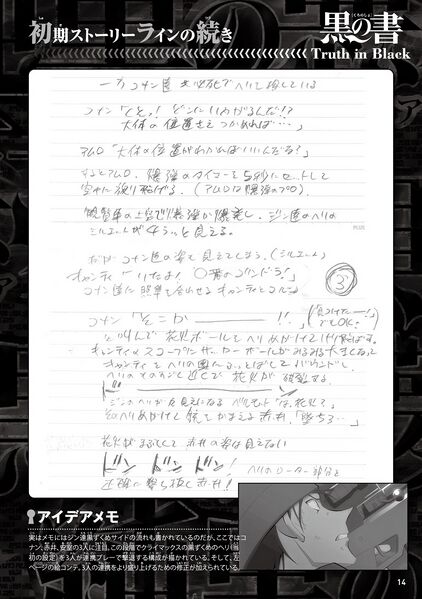 初期ストーリーラインの続き
黒の書
Truth in Black
一方コナン達も必死でヘリを探している
コナン「くそっ! どこにいやがるんだ!?
大体の位置さえつかめれば…」
アムロ「大体の位置がわかればいいんだな?」
するとアムロ、爆弾のタイマーを5秒にセットして
空中に放り投げる。(アムロは爆弾のプロ)
観覧車の上空で爆弾が爆発し、ジン達のヘリの
シルエットがチラッと見える。
だがコナン達の姿も見えてしまう。(シルエット)
キャンティ「いたよ!
コナン達に照準を合わせるキャンティとコルン
③
コナン「そこかーーー!!」
と叫んで花火ボールをヘリめがけて
キャンティのスコープにサッカーボールがみるみる大きくなって
花火が破裂する。
ドン
ジンのヘリが丸見えになる
ヘリめがけて銃をかまえる赤井「墜ちろ…」
赤井の姿は見えない
ドン ドン ドン!
ヘリのローター部分を
正確に撃ち抜く赤井!
アイデアメモ
実はメモにはジン達黒ずくめサイドの流れも書かれているのだが、ここではコ
ナン、赤井、安室の3人に注目。この段階でクライマックスの黒ずくめのヘリ(当
初の設定)を3人が連携プレーで撃退する構成が描かれている。そして、左
ページの絵コンテ。3人の連携をより盛り上げるための修正が加えられている。
14